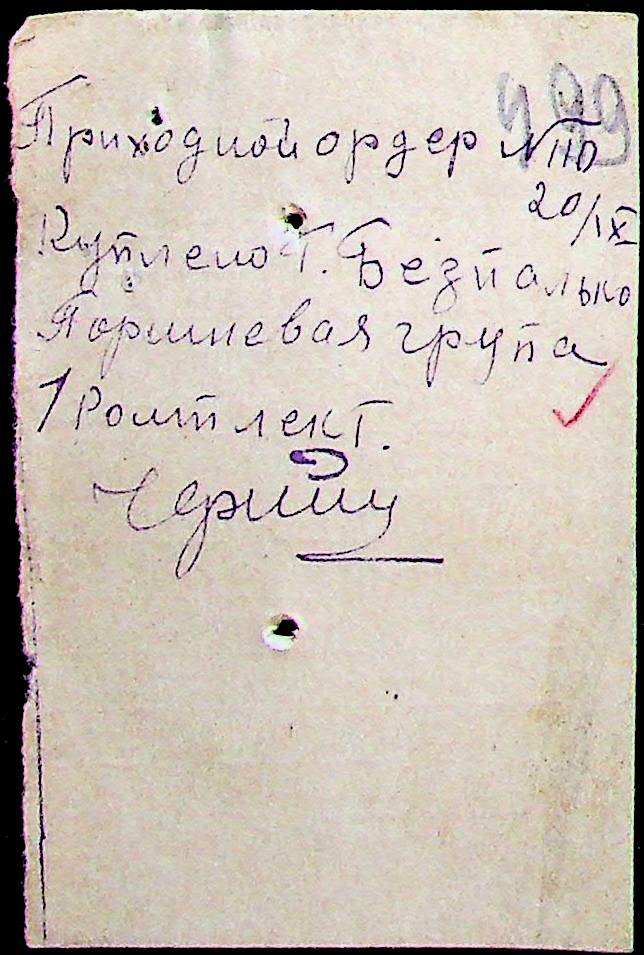 499
Приходной ордер №110
20/IX
Куплено Т. Безпалько
Поршневая група
1 Комплект.